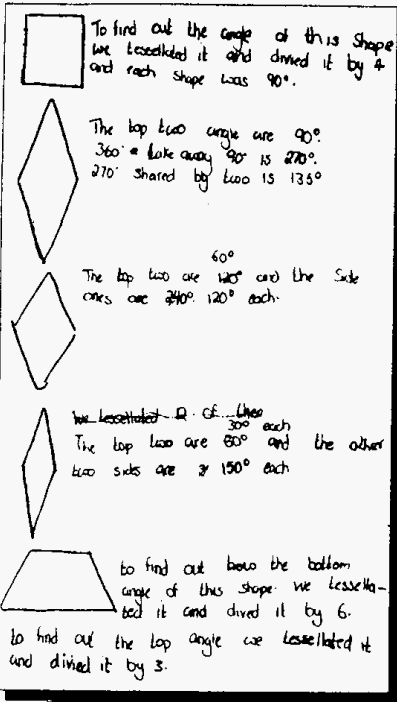 To find out the angle of this shape
we tessellated it and divied it by 4
and each shape was 90°.
The top two angle are 90°.
360° take away 90° is 270°.
270° shared by two is 135°
60°
The top two are 120° and the side
ones are 240°. 120° each.
we tessellated
30° each
The top two are 60° and the other
two sides are 150° each
to find out the bottom
angle of this shape. we tessella-
ted it and dived it by 6.
to find out the top angle we tessellated it
and divied it by 3.